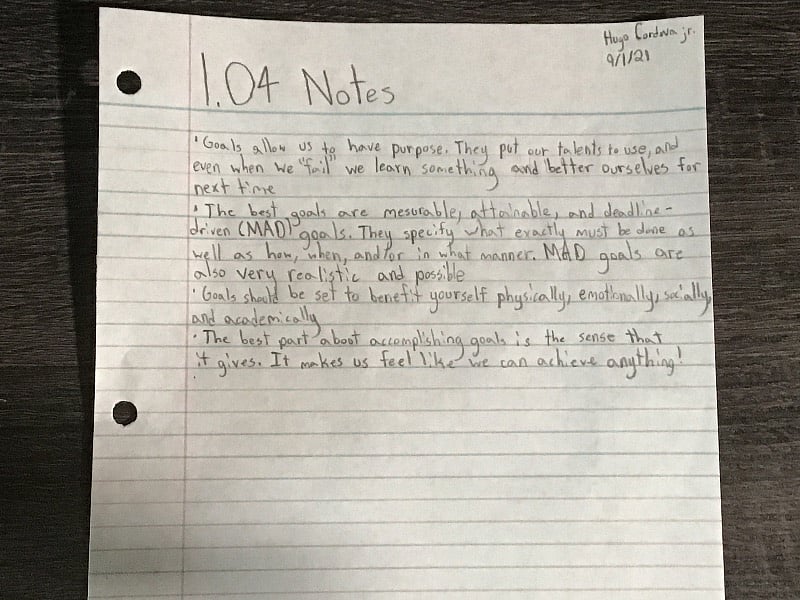 Hugo Cordova jr.
9/1/21
1.04 Notes
· Goals allow us to have purpose. They put our talents to use, and
even when we "fail" we learn something and better ourselves for
next time
· The best goals are mesurable, attainable, and deadline-
driven (MAD) goals. They specify what exactly must be done as
well as how, when, and/or in what manner. MAD goals are
also very realistic and possible
· Goals should be set to benefit yourself physically, emotionally, socially,
and academically
· The best part about accomplishing goals is the sense that
it gives. It makes us feel like we can achieve anything!